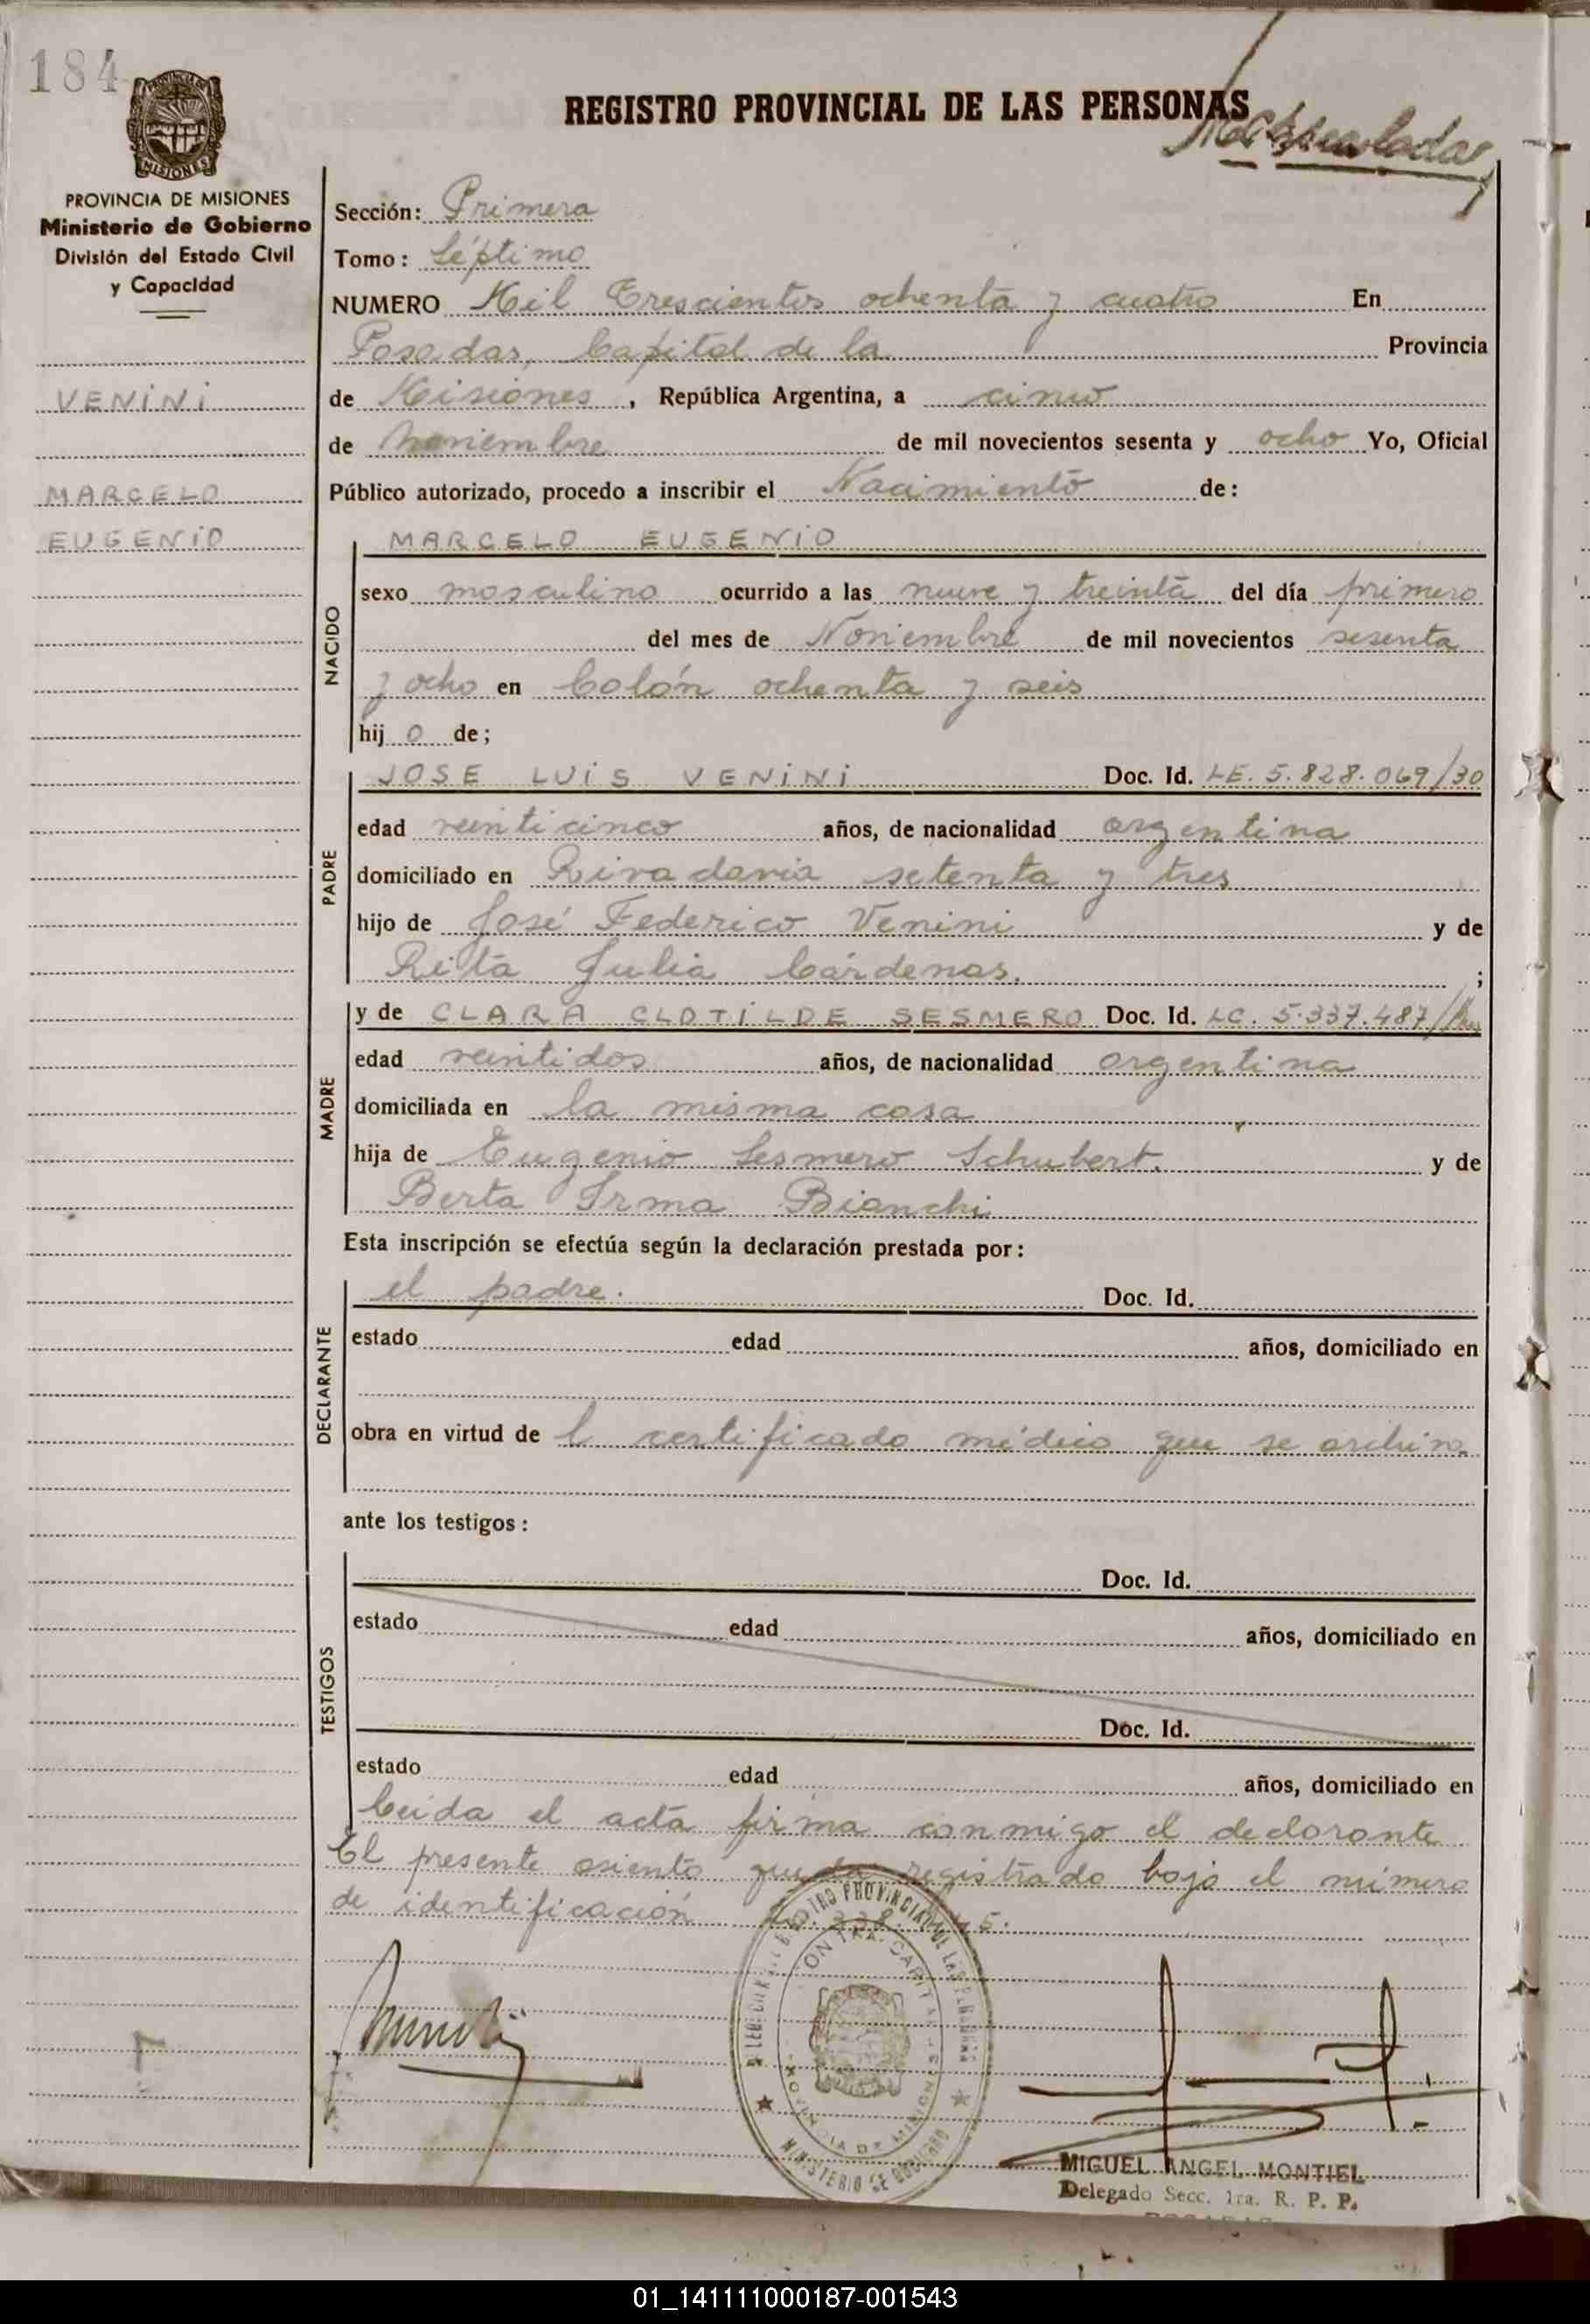 184
PROVINCIA DE MISIONES
Ministerio de Gobierno
División del Estado Civil
y Capacidad
VENINI
MARCELO
EUGENIO
REGISTRO PROVINCIAL DE LAS PERSONAS
Sección: Primera
Tomo: Séptimo
NUMERO Mil Trescientos ochenta y cuatro En
Posadas, Capital de la Provincia
de Misiones, República Argentina, a cinco
de Noviembre de mil novecientos sesenta y ocho Yo, Oficial
Público autorizado, procedo a inscribir el Nacimiento de:
NACIDO
MARCELO EUGENIO
sexo masculino ocurrido a las nueve y treinta del día primero
del mes de Noviembre de mil novecientos sesenta
y ocho en Colón ochenta y seis
hij o de;
PADRE
JOSE LUIS VENINI Doc. Id. LE. 5.828.069/30
edad veinticinco años, de nacionalidad argentina
domiciliado en Rivadavia setenta y tres
hijo de José Federico Venini y de
Rita Julia Cárdenas. ;
MADRE
y de CLARA CLOTILDE SESMERO Doc. Id. LC. 5.337.487/
edad veintidos años, de nacionalidad argentina
domiciliada en la misma casa
hija de Eugenio Sesmero Schubert. y de
Berta Irma Bianchi
Esta inscripción se efectúa según la declaración prestada por:
DECLARANTE
el padre. Doc. Id.
estado edad años, domiciliado en
obra en virtud de l certificado médico que se archiva
ante los testigos:
TESTIGOS
Doc. Id.
estado edad años, domiciliado en
Doc. Id.
estado edad años, domiciliado en
Leída el acta firma conmigo el declarante
El presente asiento queda registrado bajo el número
de identificación
MIGUEL ANGEL MONTIEL
Delegado Secc. 1ra. R. P. P.
01_141111000187-001543